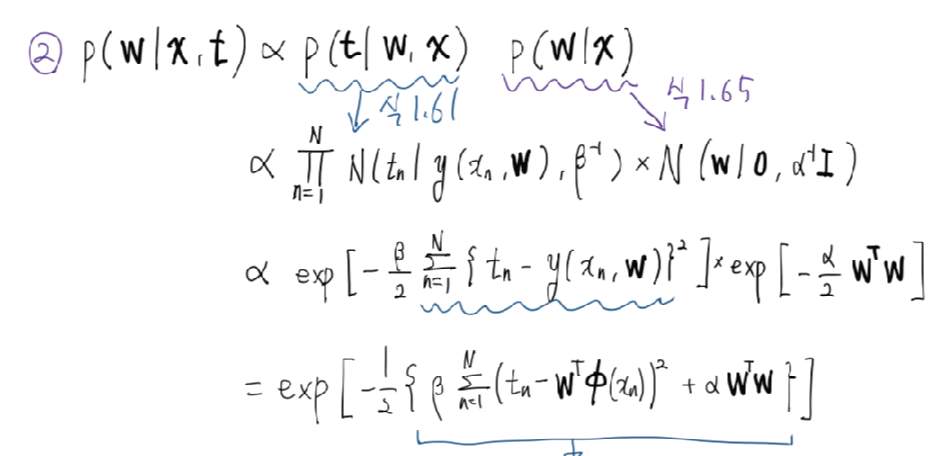 ② p(w|x,t) ∝ p(t|w,x) p(w|x)
식 1.61 식 1.65
∝ ∏_{n=1}^{N} N(t_n | y(x_n, w), β⁻¹) × N(w | 0, α⁻¹I)
∝ exp[-β/2 Σ_{n=1}^{N} {t_n - y(x_n, w)}²] × exp[-α/2 wᵀw]
= exp[-1/2 {β Σ_{n=1}^{N} (t_n - wᵀϕ(x_n))² + α wᵀw}]